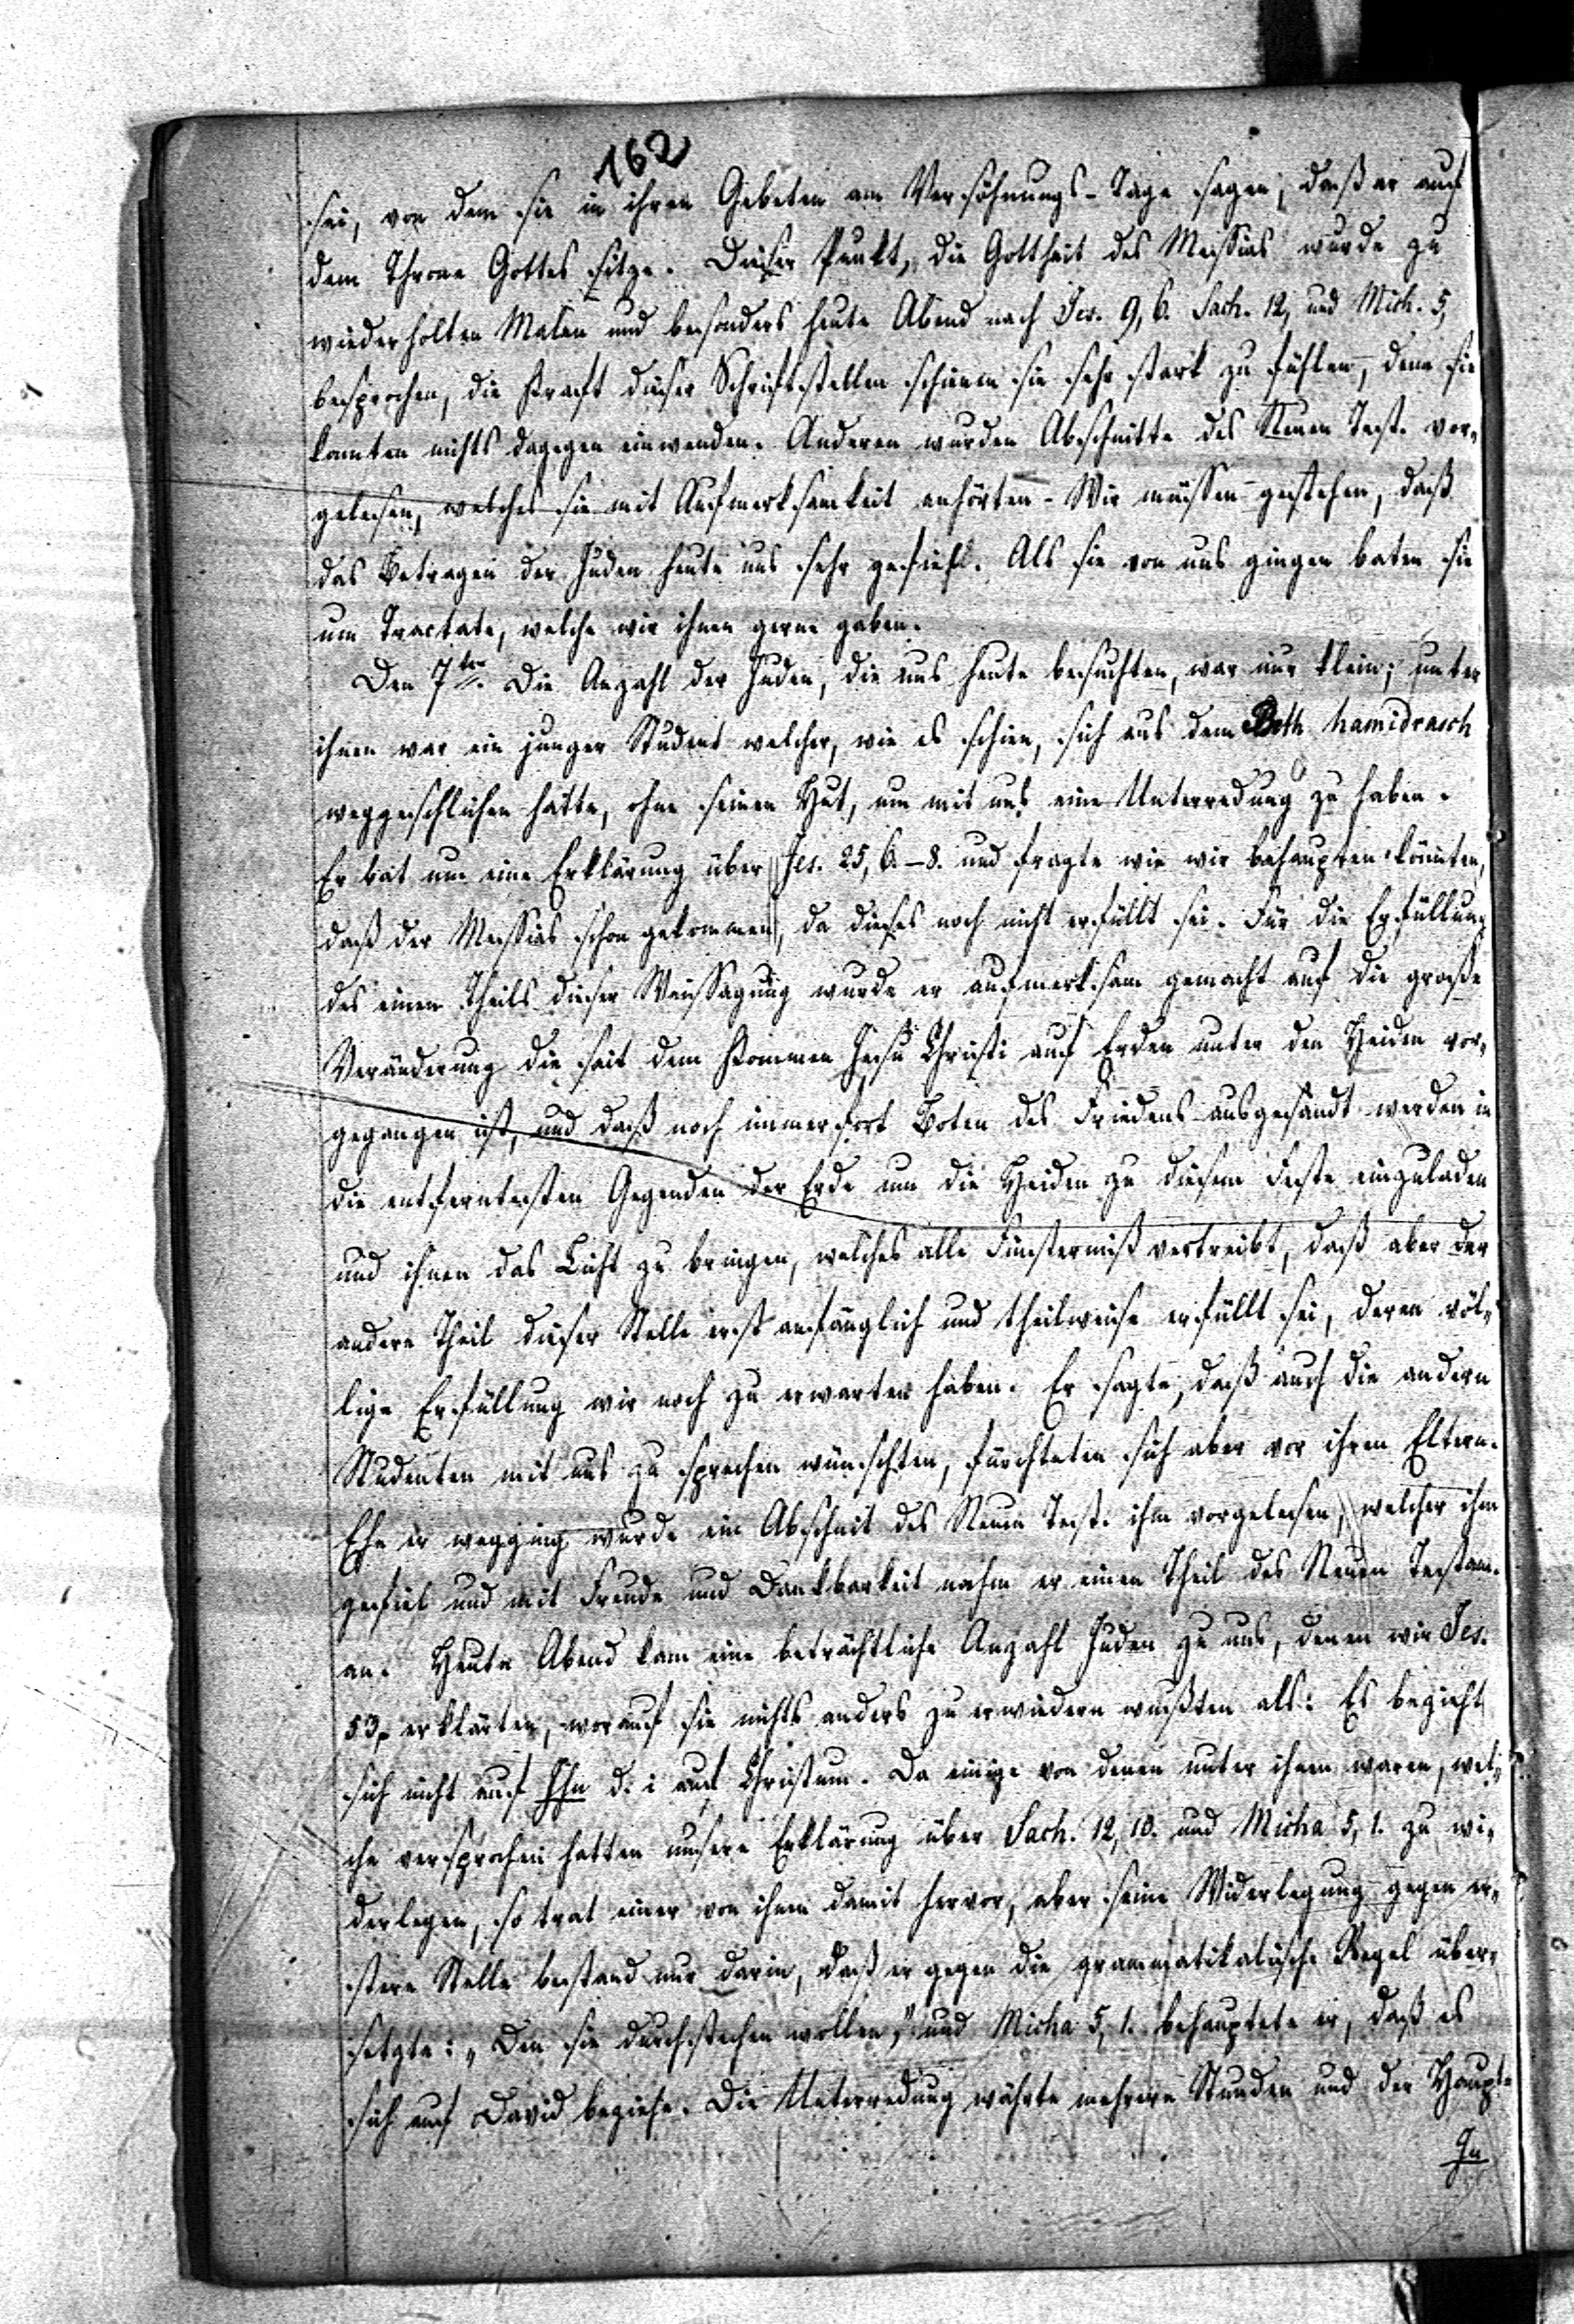 162
sei, von dem sie in ihren Gebeten am Versöhnungs-Tage sagen, daß er auf
dem Throne Gottes sitze. Dieser Punkt, die Gottheit des Messias wurde zu
wiederholten Malen und besonders heute Abend nach Jes. 9, 6. Sach. 12, und Mich. 5,
besprochen, die Kraft dieser Schriftstellen schienen sie sehr stark zu fühlen, denn sie
konnten nichts dagegen einwenden. Anderen wurden Abschnitte des Neuen Test. vor-
gelesen, welches sie mit Aufmerksamkeit anhörten - Wir müssen gestehen, daß
das Betragen der Juden heute uns sehr gefiehl. Als sie von uns gingen baten sie
um Tractate, welche wir ihnen gerne gaben.
Den 7ten. Die Anzahl der Juden, die uns heute besuchten, war nur klein; unter
ihnen war ein junger Student welcher, wie es schien, sich aus dem Beth hamidrasch
weggeschlichen hatte, ohne seinen Hut, um mit uns eine Unterredung zu haben.
Er bat um eine Erklärung über Jes. 25, 6.-8. und fragte wie wir behaupten könnten,
daß der Messias schon gekommen, da dieses noch nicht erfüllt sei. Für die Erfüllung
des einen Theils dieser Weissagung wurde er aufmerksam gemacht auf die große
Veränderung die seit dem Kommen Jesu Christi auf Erden unter den Heiden vor-
gegangen ist, und daß noch immerfort Boten des Friedens ausgesandt werden in
die entferntesten Gegenden der Erde um die Heiden zu diesem Feste einzuladen
und ihnen das Licht zu bringen, welches alle Finsterniß vertreibt, daß aber der
andere Theil dieser Stelle erst anfänglich und theilweise erfüllt sei, deren völ-
lige Erfüllung wir noch zu erwarten haben. Er sagte, daß auch die andern
Studenten mit uns zu sprechen wünschten, fürchteten sich aber vor ihren Eltern.
Ehe er wegging wurde ein Abschnit des Neuen Test. ihm vorgelesen, welcher ihm
gefiel und mit Freude und Dankbarkeit nahm er einen Theil des Neuen Testam.
an. Heute Abend kam eine beträchtliche Anzahl Juden zu uns, denen wir Jes.
53, erklärten, worauf sie nichts anders zu erwiedern wußten als: Es bezieht
sich nicht auf Ihn d. i auf Christum. Da einige von denen unter ihnen waren, wel-
che versprochen hatten unsere Erklärung über Sach. 12, 10. und Micha 5, 1. zu wi-
derlegen, so trat einer von ihnen damit hervor, aber seine Widerlegung gegen er-
stere Stelle bestand nur darin, daß er gegen die grammatikalische Regel über-
setzte: „Den sie durchstechen wollen," und Micha 5, 1. behauptete er, daß es
sich auf David beziehe. Die Unterredung währte mehrere Stunden und der Haupt-